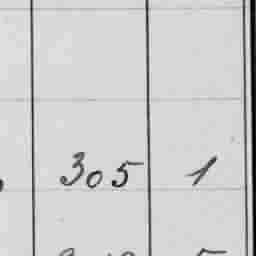 305 1